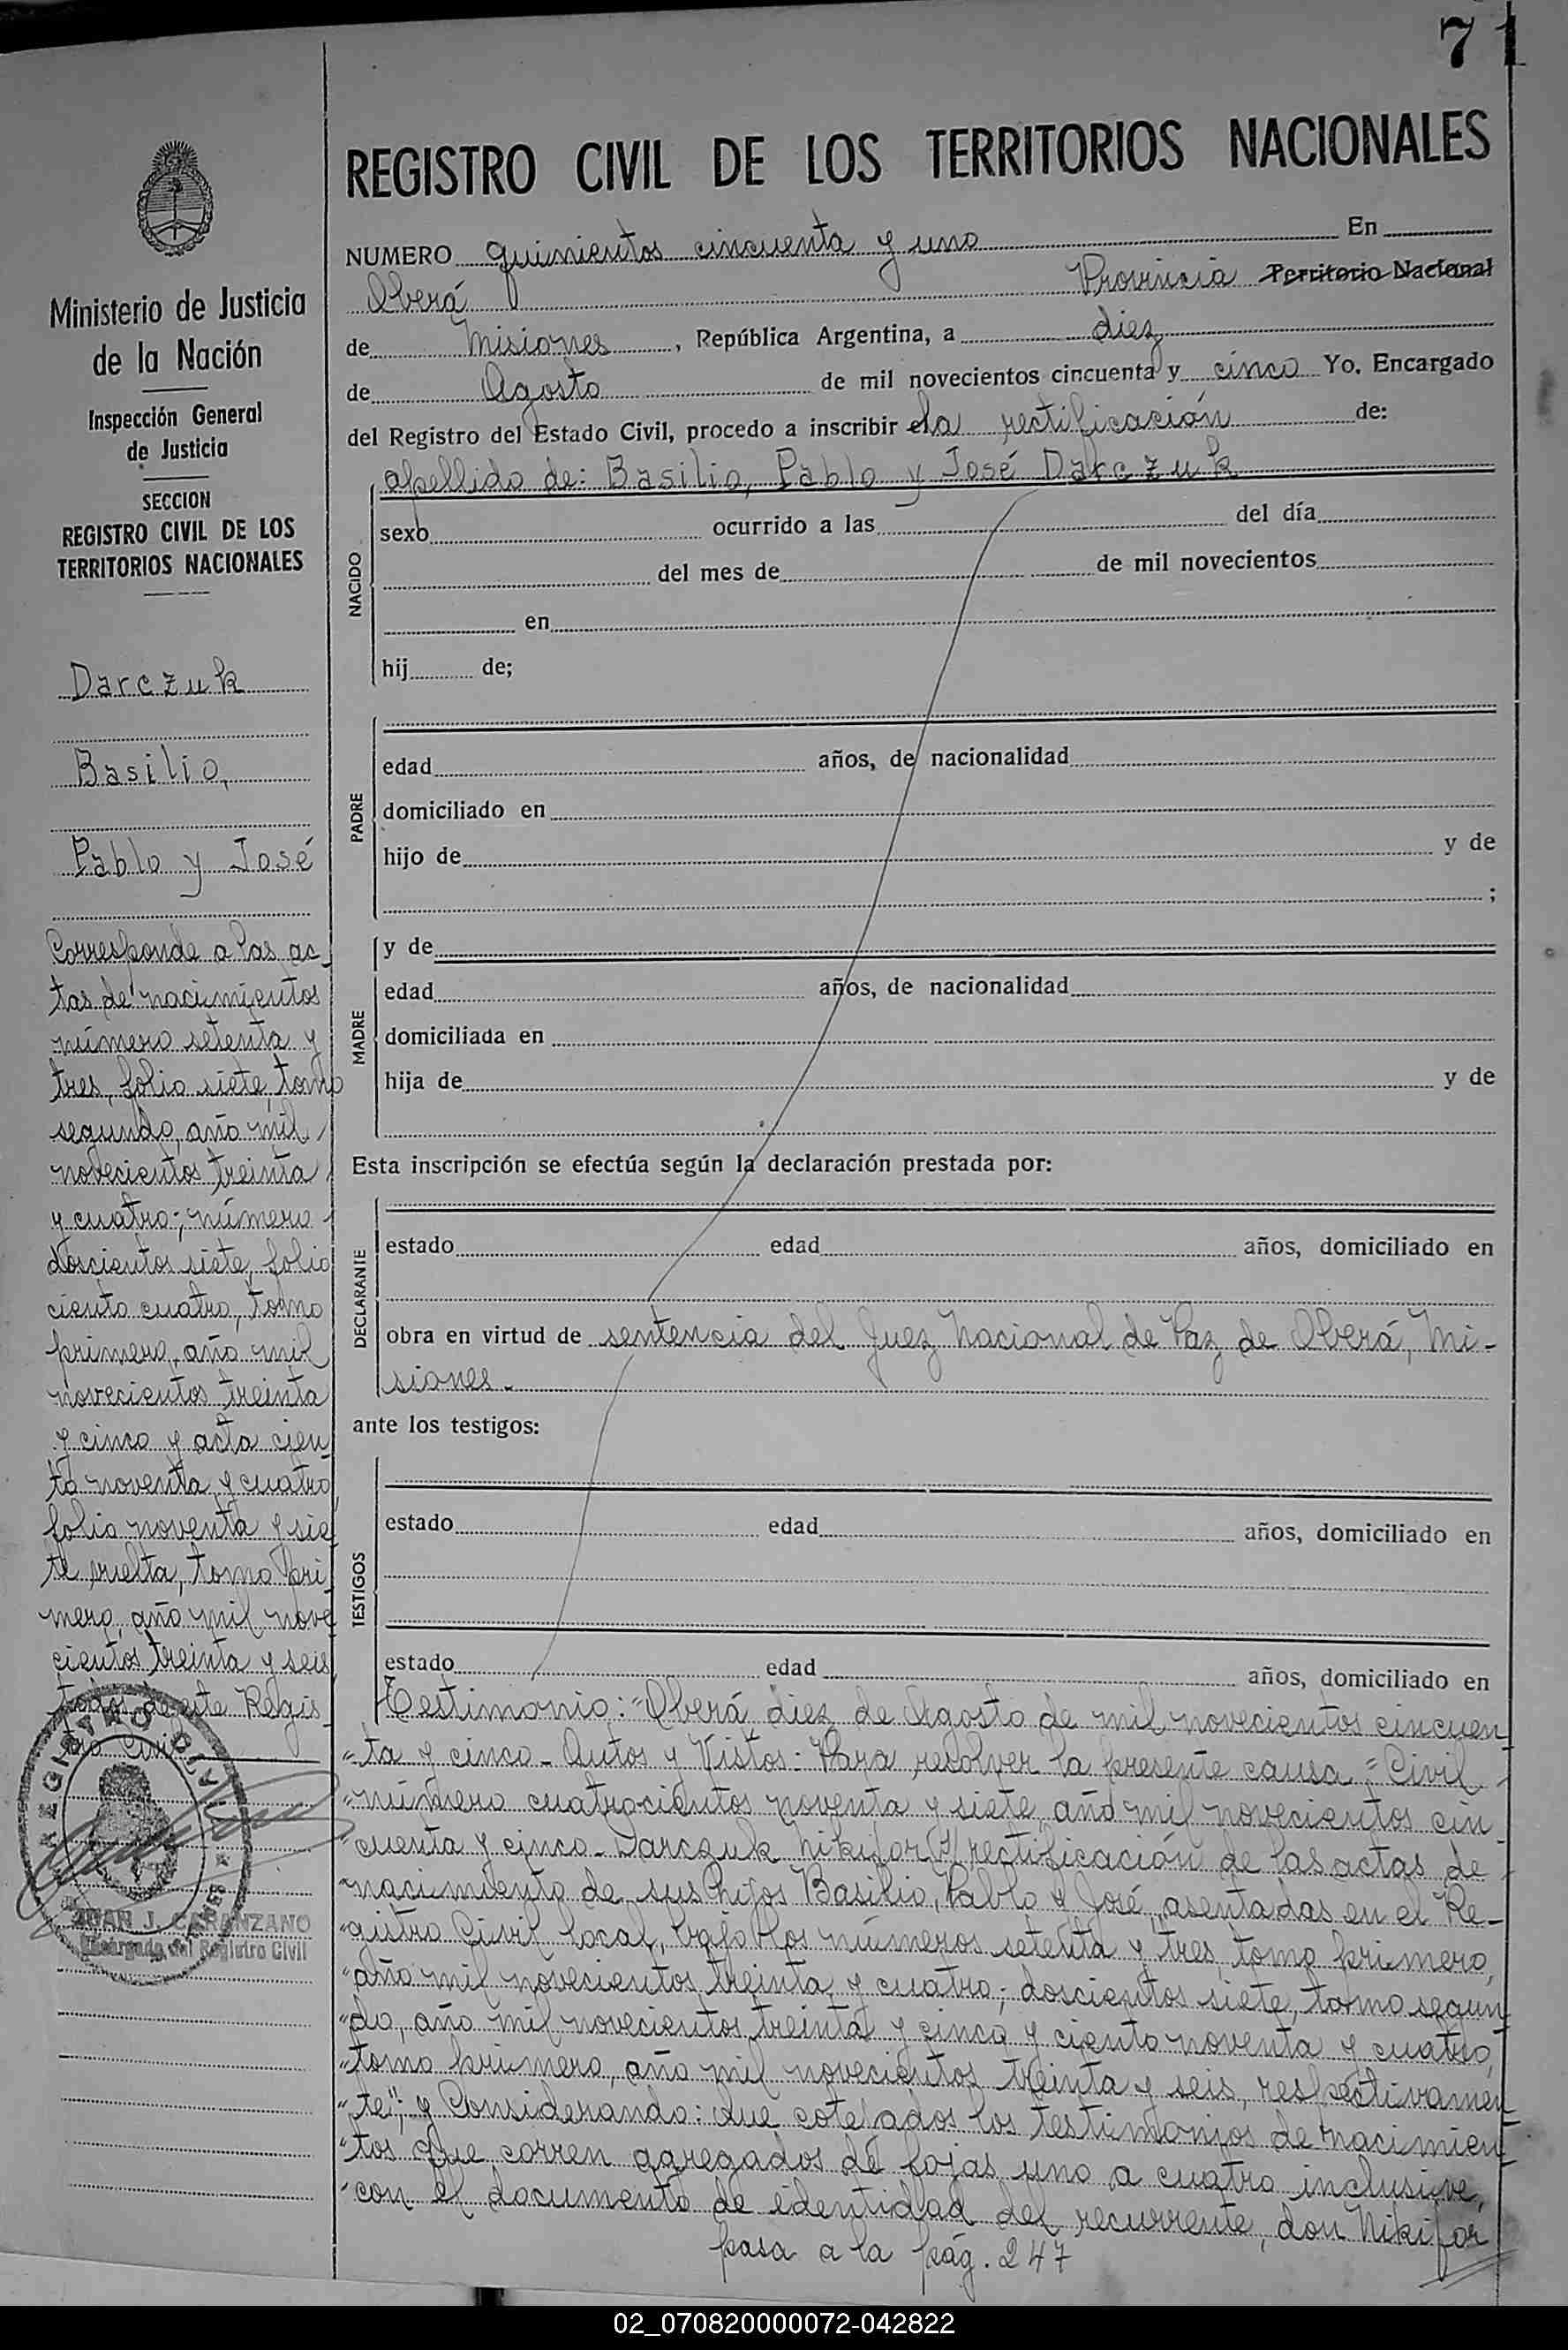 71
REGISTRO CIVIL DE LOS TERRITORIOS NACIONALES
NUMERO quinientos cincuenta y uno En
Oberá Provincia Territorio Nacional
de Misiones, República Argentina, a diez
de Agosto de mil novecientos cincuenta y cinco Yo, Encargado
del Registro del Estado Civil, procedo a inscribir la rectificación de:
apellido de: Basilio, Pablo y José Darczuk
NACIDO
sexo ocurrido a las del día
del mes de de mil novecientos
en
hij de;
PADRE
edad años, de nacionalidad
domiciliado en
hijo de y de
;
MADRE
y de
edad años, de nacionalidad
domiciliada en
hija de y de
Esta inscripción se efectúa según la declaración prestada por:
DECLARANTE
estado edad años, domiciliado en
obra en virtud de sentencia del Juez Nacional de Paz de Oberá, Mi-
siones.
ante los testigos:
TESTIGOS
estado edad años, domiciliado en
estado edad años, domiciliado en
Testimonio: "Oberá diez de Agosto de mil novecientos cincuen
"ta y cinco. Autos y Vistos: Para resolver la presente causa, Civil
"número cuatrocientos noventa y siete, año mil novecientos cin
"cuenta y cinco. Darczuk Nikifor s/ rectificación de las actas de
"nacimiento de sus hijos Basilio, Pablo y José, asentadas en el Re-
"gistro Civil local, bajo los números setenta y tres, tomo primero,
"año mil novecientos treinta y cuatro; doscientos siete, tomo segun
"do, año mil novecientos treinta y cinco y ciento noventa y cuatro,
"tomo primero, año mil novecientos treinta y seis, respectivamen
"te"; y Considerando: Que cotejados los testimonios de nacimien
"tos que corren agregados de fojas uno a cuatro inclusive,
"con el documento de identidad del recurrente, don Nikifor
pasa a la pág. 247
Ministerio de Justicia
de la Nación
Inspección General
de Justicia
SECCION
REGISTRO CIVIL DE LOS
TERRITORIOS NACIONALES
Darczuk
Basilio,
Pablo y José
Corresponde a las ac-
tas de nacimientos
número setenta y
tres, folio siete, tomo
segundo, año mil
novecientos treinta
y cuatro; número
doscientos siete, folio
ciento cuatro, tomo
primero, año mil
novecientos treinta
y cinco y acta cien
to noventa y cuatro
folio noventa y sie
te vuelta, tomo pri
mero, año mil nove
cientos treinta y seis
todos de este Regis-
tro Civil
REGISTRO CIVIL
JUAN J. CARANZANO
Encargado del Registro Civil
02_070820000072-042822